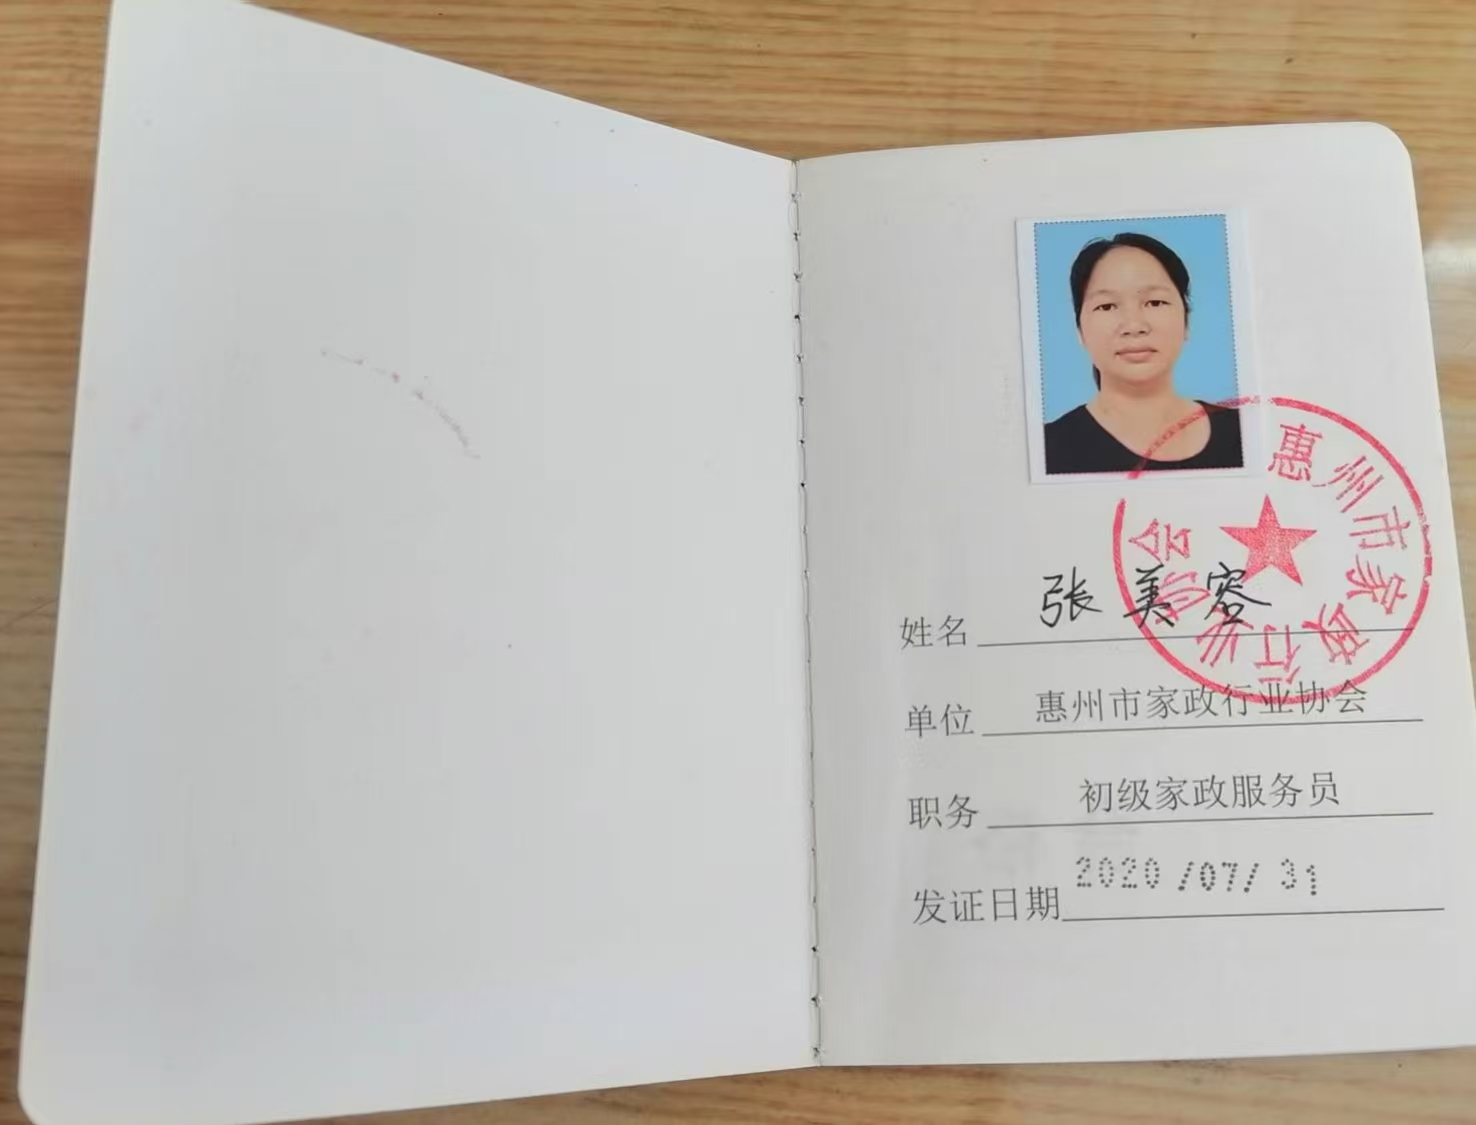 惠州市家政行业协会
姓名 张美容
单位 惠州市家政行业协会
职务 初级家政服务员
发证日期 2020/07/31